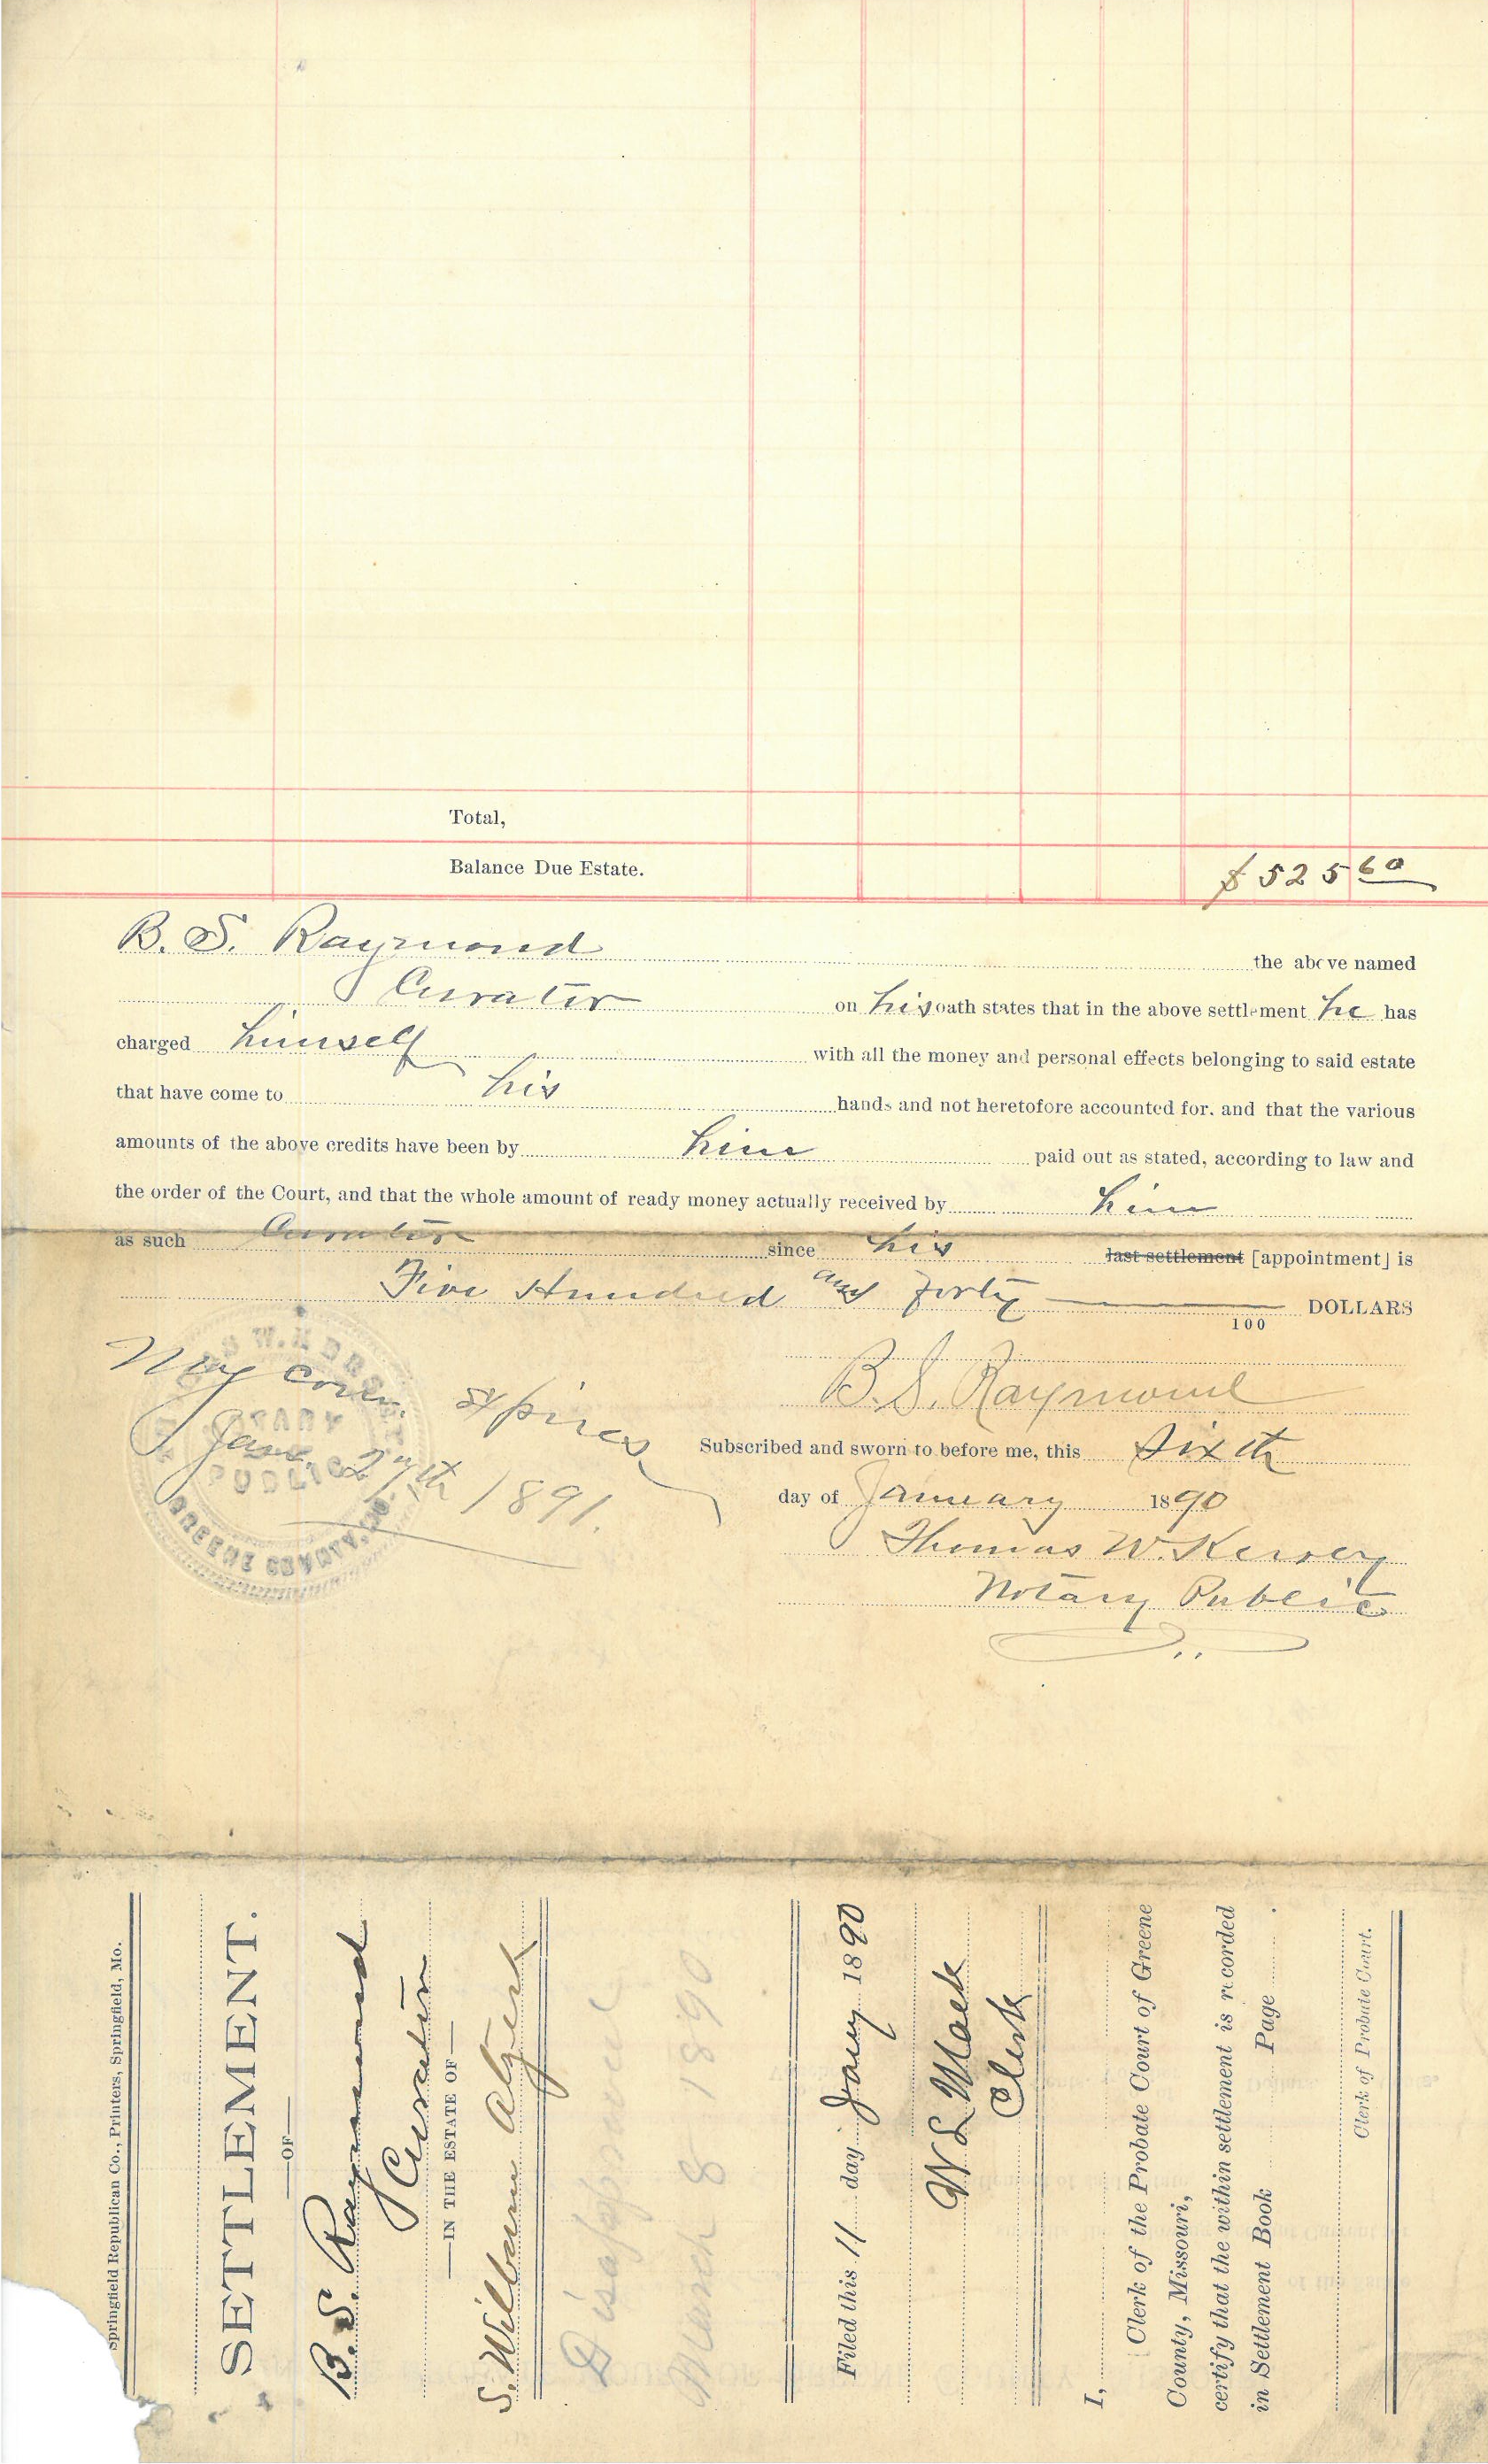 Total,
Balance Due Estate. $ 525 60
B. S. Raymond the above named
Curator on his oath states that in the above settlement he has
charged himself with all the money and personal effects belonging to said estate
that have come to his hands and not heretofore accounted for, and that the various
amounts of the above credits have been by him paid out as stated, according to law and
the order of the Court, and that the whole amount of ready money actually received by him
as such Curator since his last settlement [appointment] is
Five Hundred and forty DOLLARS
100
My com. expires
Jan. 27th 1891.
NOTARY
PUBLIC
GREENE COUNTY, MO.
B. S. Raymond
Subscribed and sworn to before me, this Sixth
day of January 1890
Thomas W. Kersey
Notary Public
Springfield Republican Co., Printers, Springfield, Mo.
SETTLEMENT.
—OF—
B. S. Raymond
Curator
—IN THE ESTATE OF—
S. Wilbam
Disapproved
March 8 1890
Filed this 11 day Jany 1890
W L Mack
Clerk
I,
Clerk of the Probate Court of Greene
County, Missouri,
certify that the within settlement is recorded
in Settlement Book Page .
Clerk of Probate Court.